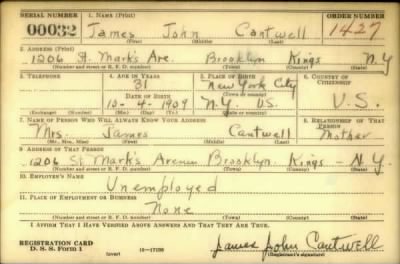 SERIAL NUMBER 1. NAME (Print) ORDER NUMBER
00032 James John Cantwell 1427
(First) (Middle) (Last)
2. ADDRESS (Print)
1206 St. Mark's Ave. Brooklyn Kings N.Y
(Number and street or R. F. D. number) (Town) (County) (State)
3. TELEPHONE 4. AGE IN YEARS 5. PLACE OF BIRTH 6. COUNTRY OF CITIZENSHIP
31 New York City
DATE OF BIRTH (Town or county)
10-4-1909 N.Y. U.S. U.S.
(Exchange) (Number) (Mo.) (Day) (Yr.) (State or country)
7. NAME OF PERSON WHO WILL ALWAYS KNOW YOUR ADDRESS 8. RELATIONSHIP OF THAT PERSON
Mrs. James Cantwell Mother
(Mr., Mrs., Miss) (First) (Middle) (Last)
9. ADDRESS OF THAT PERSON
1206 St Mark's Avenue Brooklyn. Kings - N.Y.
(Number and street or R. F. D. number) (Town) (County) (State)
10. EMPLOYER'S NAME
Unemployed
11. PLACE OF EMPLOYMENT OR BUSINESS
None
(Number and street or R. F. D. number) (Town) (County) (State)
I AFFIRM THAT I HAVE VERIFIED ABOVE ANSWERS AND THAT THEY ARE TRUE.
REGISTRATION CARD James John Cantwell
D. S. S. Form 1 (over) (Registrant's signature)